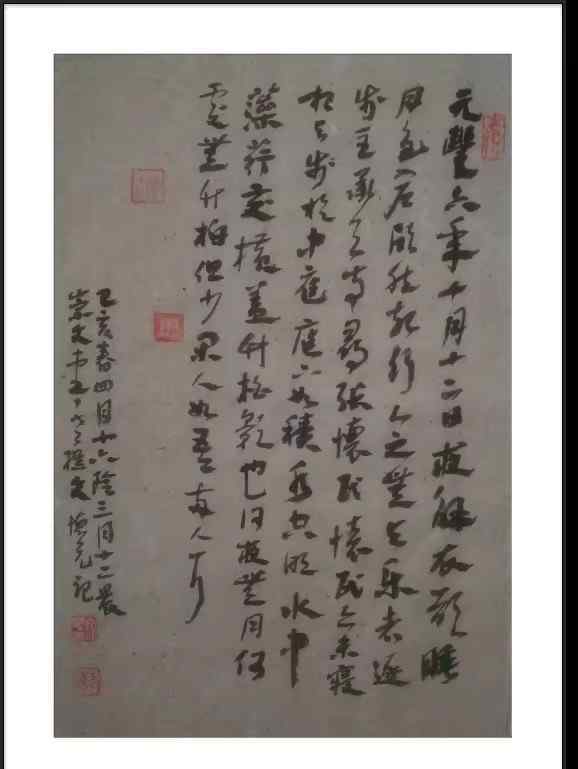 元豐六年十月十二日夜解衣欲睡
月色入户欣然起行念之無与樂者遂
步至承天寺尋張懷民懷民亦未寢
相与步於中庭庭下如積水空明水中
藻荇交橫蓋竹柏影也何夜無月何
處無竹柏但少閑人如吾兩人耳
己亥春四月廿六陰三月廿二晨
崇文 記